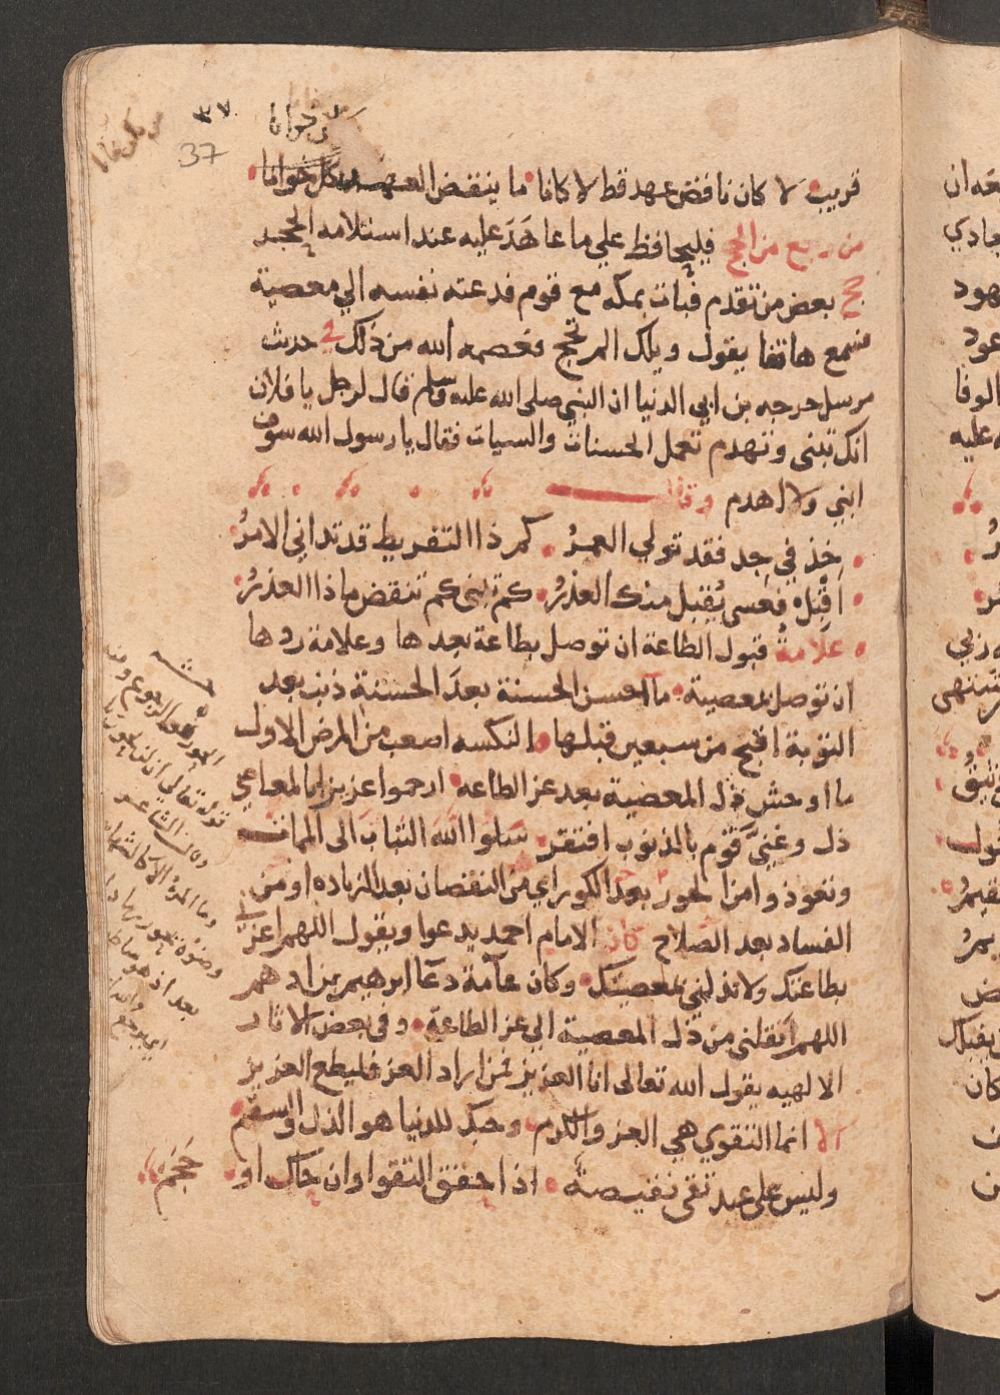 ٣٧
37
كل خوانا
قريب لا كان ناقض عهد قط لا كانا ما ينقض العهد كل خوانا
من رجع من الحج فليحافظ علي ما عاهد عليه عند استلامه الحجر
حج بعض من تقدم فبات بمكه مع قوم فدعته نفسه الي معصية
فسمع هاتفا يقول ويلك الم تحج فعصمه الله من ذلك في حديث
مرسل خرجه بن ابي الدنيا ان النبي صلى الله عليه وسلم قال لرجل يا فلان
انك تبنى وتهدم تعمل الحسنات والسيات فقال يا رسول الله سوف
ابني ولا اهدم وقال
خذ في جد فقد تولي العمرُ كم ذا التفريط قد تداني الامرُ
اقبل فعسى يُقبل منك العذرُ كم تبنى كم تنقض ماذا العذرُ
علامة قبول الطاعة ان توصل بطاعة بعدها وعلامة ردها
ان توصل بمعصية ما احسن الحسنة بعد الحسنة ذنب بعد
التوبة اقبح من سبعين قبلها النكسه اصعب من المرض الاول
ما اوحش ذل المعصية بعد عز الطاعه ارحموا عزيزا بالمعاصي
ذل وغنيّ قوم بالذنوب افتقر سلوا الله الثبات الى الممات
وتعوذوا من الحور بعد الكور اي من النقصان بعد الزياده او من
الفساد بعد الصلاح كان الامام احمد يدعوا ويقول اللهم اعزني
بطاعتك ولا تذلني بمعصيتك وكان عامة دعا ابرهيم بن ادهم
اللهم انقلني من ذل المعصية الي عز الطاعة وفي بعض الاثار
الالهيه يقول الله تعالى انا العزيز فمن اراد العز فليطع العزيز
الا انما التقوي هي العز والكرم وحبك للدنيا هو الذل والسقم
وليس على عبد تقى نقيصة اذا حقق التقوا وان حاك او حجم
الحور هو الرجوع ومنه
قوله تعالي انه ظن ان لن يحور
وقال الشاعر
وما المرء الا كالشهاب
وضوءه يحور رمادا
بعد اذ هو ساطع
اي يرجع والله